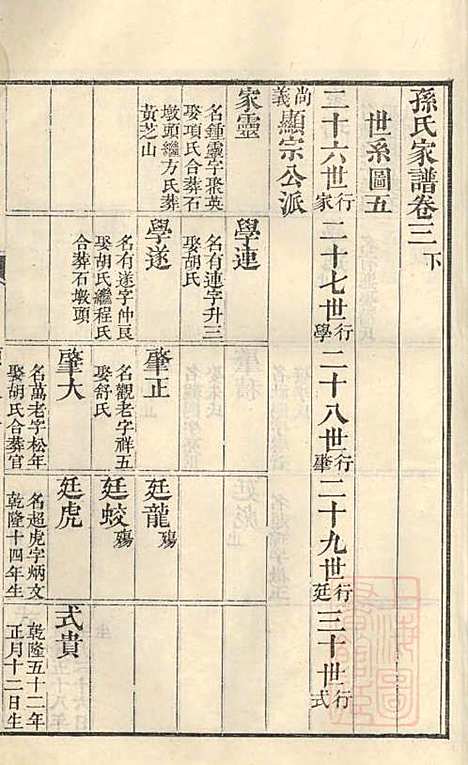 孫氏家譜卷三 下
世系圖五
二十六世行家 二十七世行學 二十八世行肇 二十九世行廷 三十世行式
尚義 顯宗公派
家靈
名鍾靈字聚英
娶項氏合葬石
墩頭繼方氏葬
黃芝山
學連
名有連字升三
娶胡氏
學遂
名有遂字仲艮
娶胡氏繼程氏
合葬石墩頭
肇正
名觀老字祥五
娶舒氏
肇大
名萬老字松年
娶胡氏合葬官
廷龍 殤
廷蛟 殤
廷虎
名超虎字炳文
乾隆十四年生
式貴
乾隆五十二年
正月十二日生